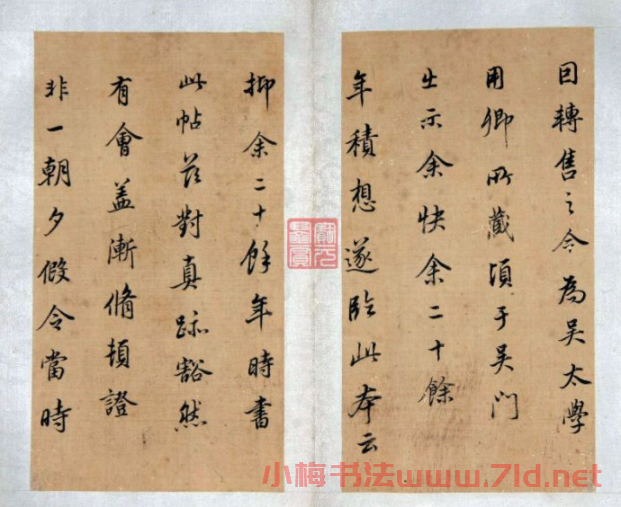 回轉售之今為吴太學
用卿所藏頃于吴門
出示余快余二十餘
年積想遂臨此本云
抑余二十餘年時書
此帖兹對真跡豁然
有會蓋漸脩頓證
非一朝夕假令當時
小梅书法www.7ld.net